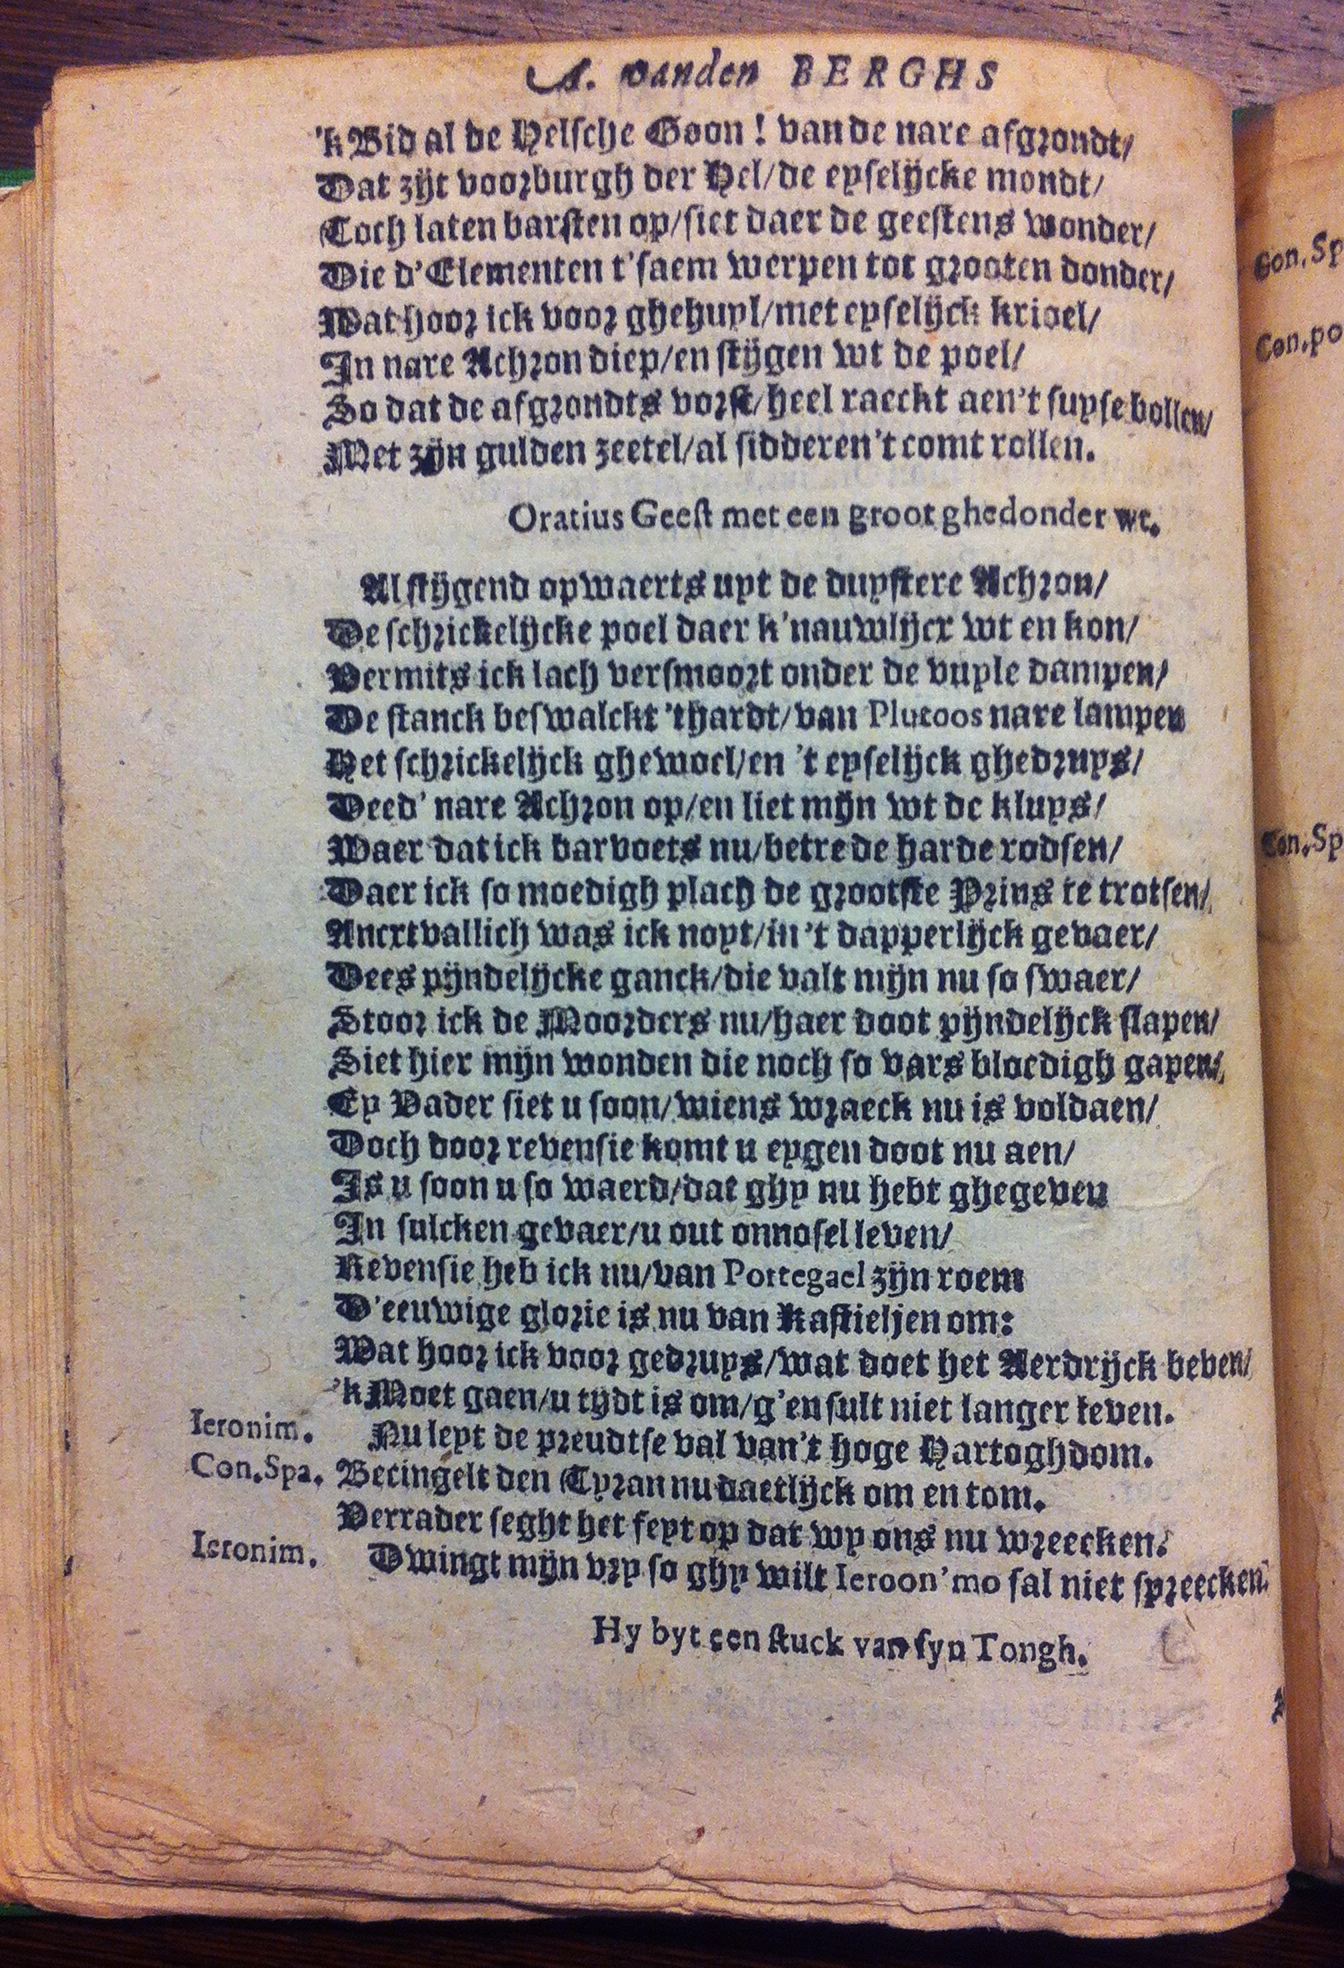 A. vanden BERGHS
'k Bid al de Helsche Goon! van de nare afgrondt/
Dat zijt voorburgh der Hel/de eyselijcke mondt/
Toch laten barsten op/siet daer de geestens wonder/
Die d'Elementen t'saem werpen tot grooten donder/
Wat hoor ick voor ghehuyl/met eyselijck krioel/
In nare Achron diep/en stijgen wt de poel/
So dat de afgrondts vorst/heel raeckt aen't suysebollen/
Met zijn gulden zeetel/al sidderen't comt rollen.
Oratius Geest met een groot ghedonder wt.
Al stijgend opwaerts uyt de duystere Achron/
De schrickelijcke poel daer k'nauwlijcx wt en kon/
Vermits ick lach versmoort onder de vuyle dampen/
De stanck beswalckt 't hardt/van Plutoos nare lampen
Het schrickelijck ghewoel/en 't eyselijck ghedruys/
Deed' nare Achron op/en liet mijn wt de kluys/
Waer dat ick barvoets nu/betrede harde rodsen/
Daer ick so moedigh plach de grootste Prins te trotsen/
Ancxtvallich was ick noyt/in 't dapperlijck gevaer/
Dees pijndelijcke ganck/die valt mijn nu so swaer/
Stoor ick de Moorders nu/haer doot pijndelijck slapen/
Siet hier mijn wonden die noch so vars bloedigh gapen/
Ey Vader siet u soon/wiens wraeck nu is voldaen/
Doch door revensie komt u eygen doot nu aen/
Is u soon u so waerd/dat ghy nu hebt ghegeven
In sulcken gevaer/u out onnosel leven/
Revensie heb ick nu/van Portegael zijn roem
D'eeuwige glorie is nu van Kastieljen om:
Wat hoor ick voor gedruys/wat doet het Aerdrijck beven/
'k Moet gaen/u tijdt is om/g'en sult niet langer leven.
Ieronim. Nu leyt de preudtse val van't hoge Hartoghdom.
Con.Spa. Becingelt den Tyran nu daetlijck om en tom.
Verrader seght het feyt op dat wy ons nu wreecken.
Ieronim. Dwingt mijn vry so ghy wilt Ieroon'mo sal niet spreecken.
Hy byt een stuck van syn Tongh.
Con. Sp
Con. po
Con. Sp